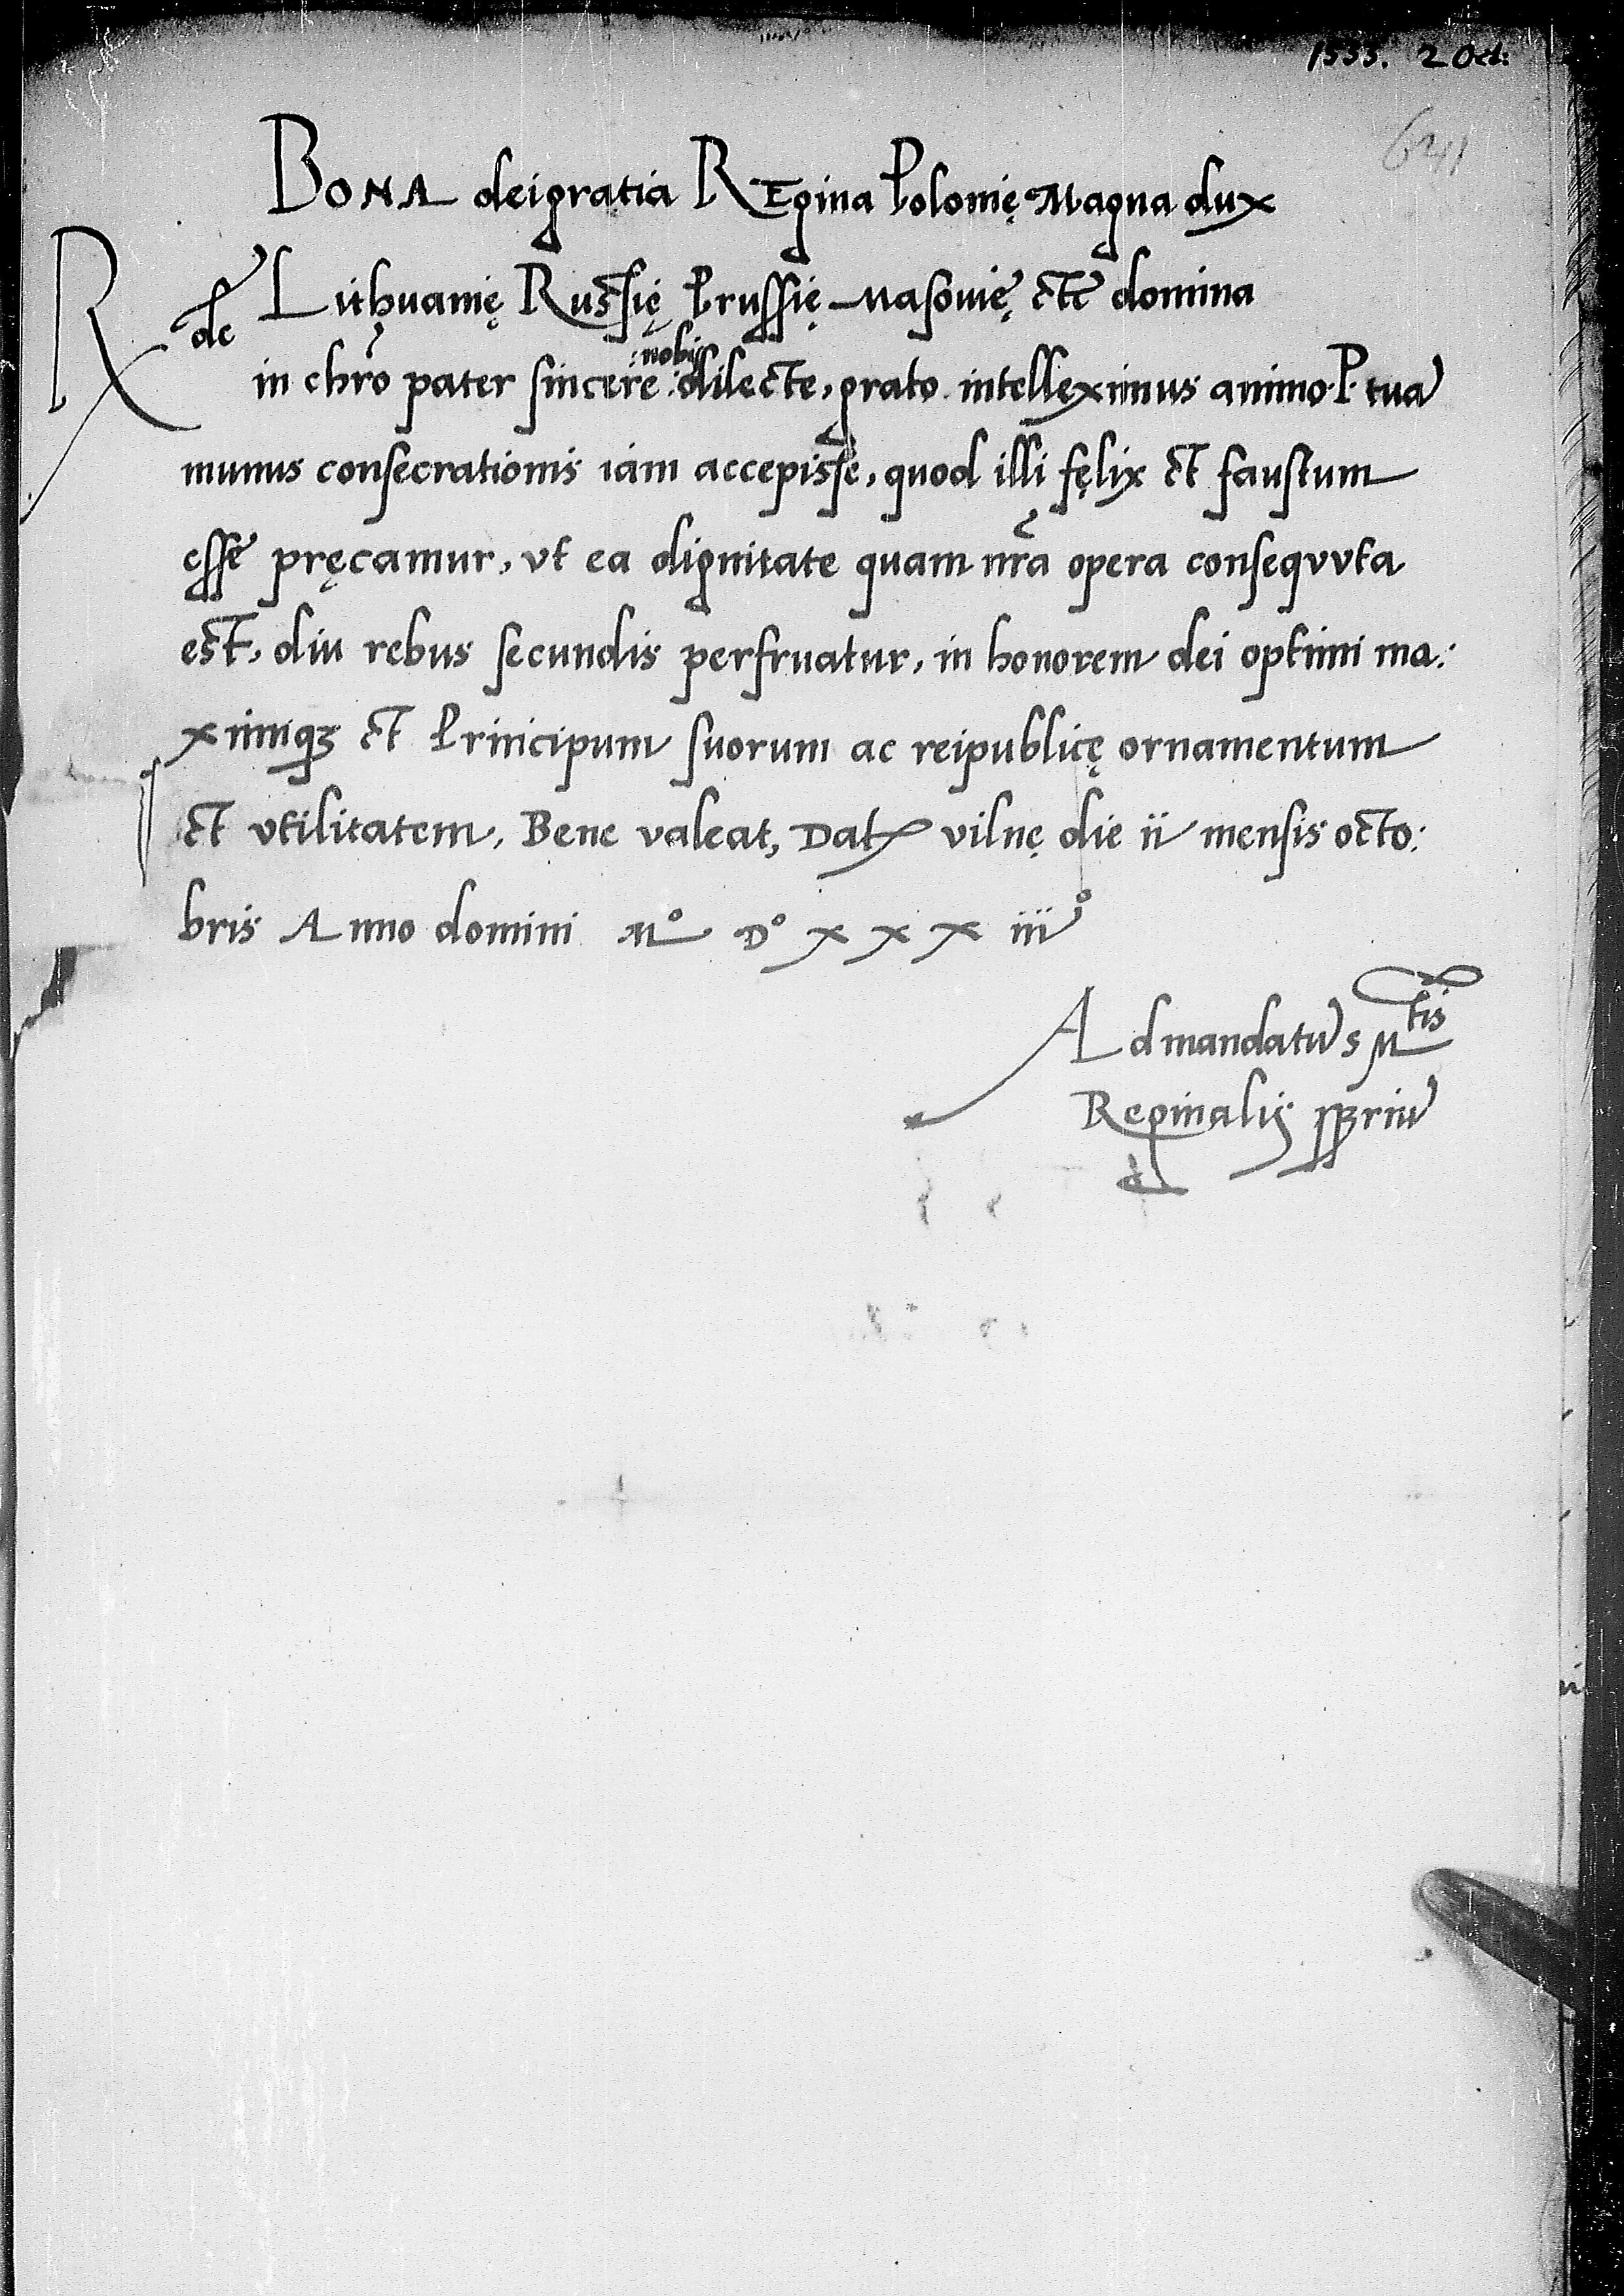 1533. 2 Oct:
BONA dei gratia REgina Polonię Magna dux
Lithuanię Russię Prussię Masovię etc domina
Rde in chro pater sincere nobis dilecte, grato intelleximus animo P. tuā
munus consecrationis iam accepisse, quod illi fęlix et faustum
esse pręcamur, vt ea dignitate quam nrā opera conseqvvta
est, diu rebus secundis perfruatur, in honorem dei optimi ma:
ximiqʒ et Principum suorum ac reipublicę ornamentum
et vtilitatem, Bene valeat, Datꝭ vilnę die ii mensis octo:
bris Anno domini Mº Dº xxx iiiº
Ad mandatū S Mtis
Reginalis ꝓpriū